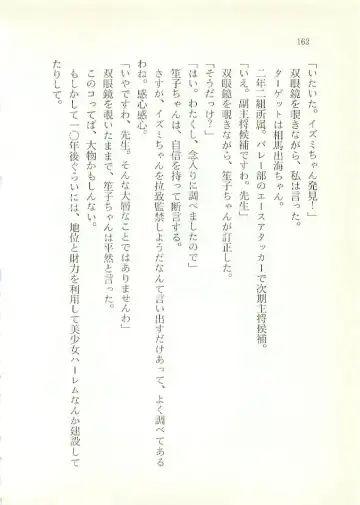 162
「いたいた。イズミちゃん発見！」
双眼鏡を覗きながら、私は言った。
ターゲットは相馬出海ちゃん。
二年二組所属。バレー部のエースアタッカーで次期主将候補。
「いえ。副主将候補ですわ。先生」
双眼鏡を覗きながら、笙子ちゃんが訂正した。
「そうだっけ？」
「はい。わたくし、念入りに調べましたので」
笙子ちゃんは、自信を持って断言する。
さすが、イズミちゃんを拉致監禁しようだなんて言い出すだけあって、よく調べてある
わね。感心感心。
「いやですわ、先生。そんな大層なことではありませんわ」
双眼鏡を覗いたままで、笙子ちゃんは平然と言った。
このコってば、大物かもしんない。
もしかして一〇年後ぐらいには、地位と財力を利用して美少女ハーレムなんか建設して
たりして。